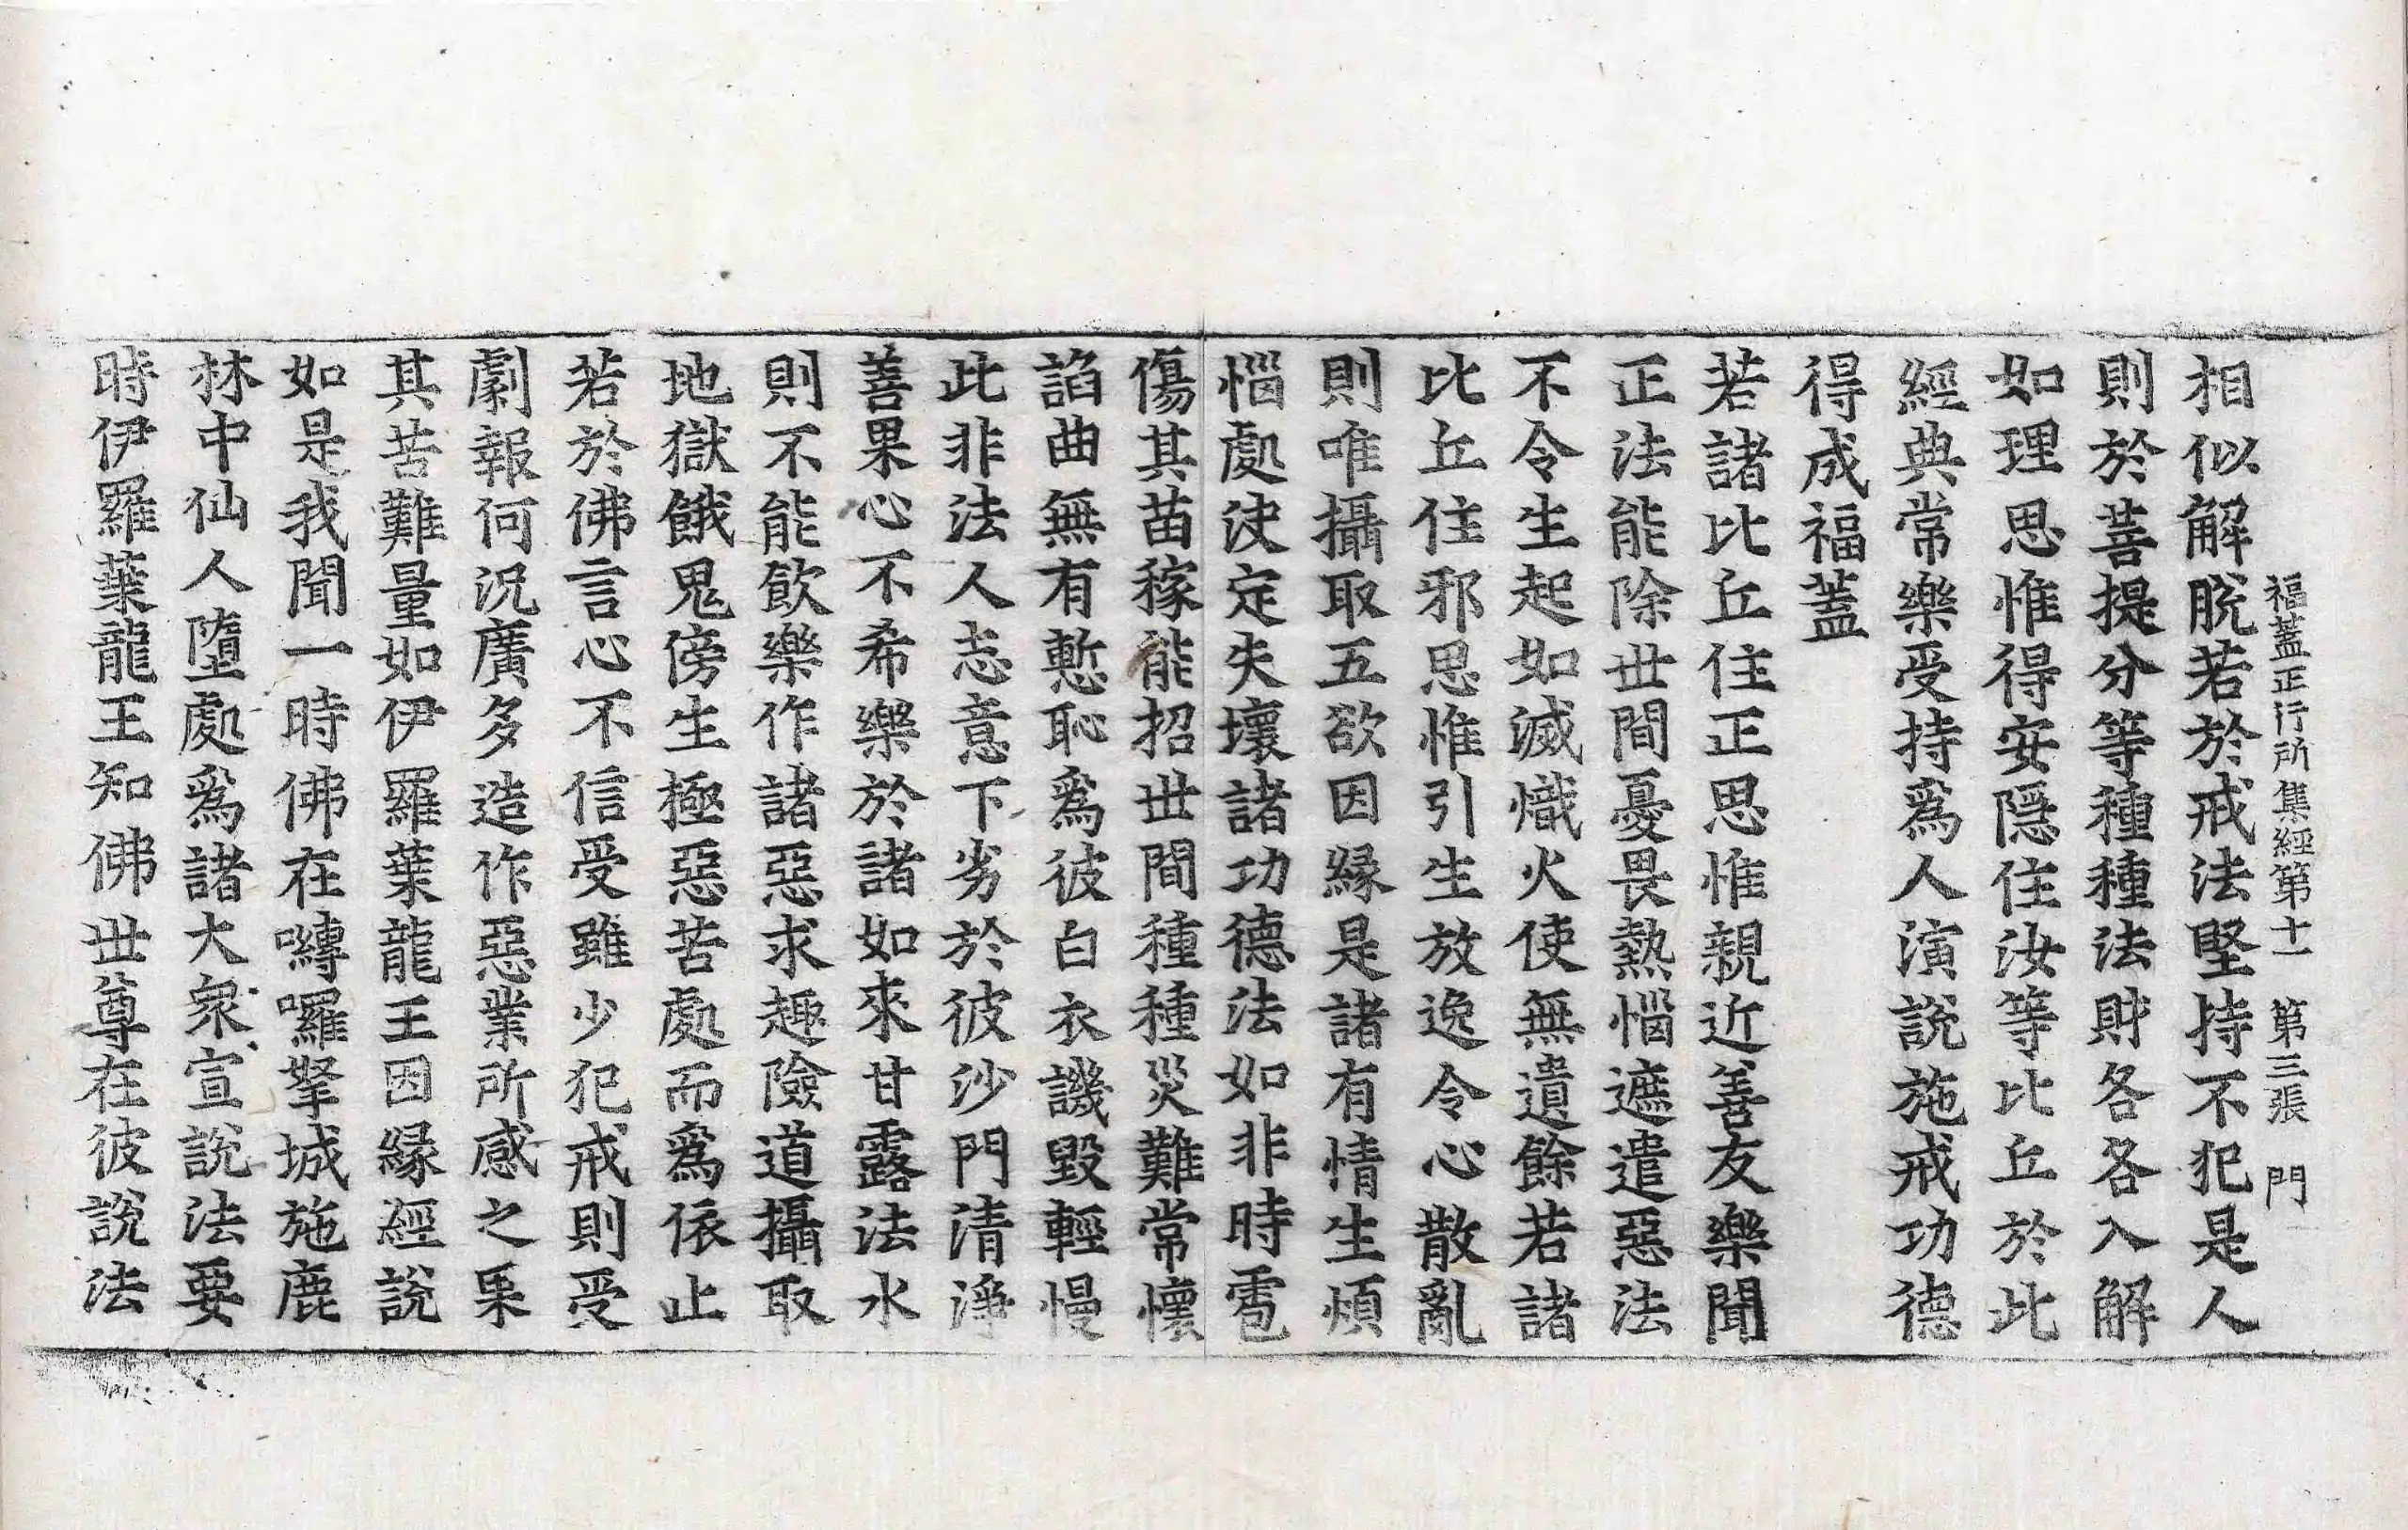 福蓋正行所集經第十一 第三張 門
相似解脫若於戒法堅持不犯是人
則於菩提分等種種法財各各入解
如理思惟得安隱住汝等比丘於此
經典常樂受持爲人演說施戒功德
得成福蓋
若諸比丘住正思惟親近善友樂聞
正法能除世間憂畏熱惱遮遣惡法
不令生起如滅熾火使無遺餘若諸
比丘住邪思惟引生放逸令心散亂
則唯攝取五欲因緣是諸有情生煩
惱處決定失壞諸功德法如非時雹
傷其苗稼能招世間種種災難常懷
諂曲無有慙恥爲彼白衣譏毀輕慢
此非法人志意下劣於彼沙門清淨
善果心不希樂於諸如來甘露法水
則不能飮樂作諸惡求趣險道攝取
地獄餓鬼傍生極惡苦處而爲依止
若於佛言心不信受雖少犯戒則受
劇報何況廣多造作惡業所感之果
其苦難量如伊羅葉龍王因緣經說
如是我聞一時佛在嚩囉拏城施鹿
林中仙人墮處爲諸大衆宣說法要
時伊羅葉龍王知佛世尊在彼說法